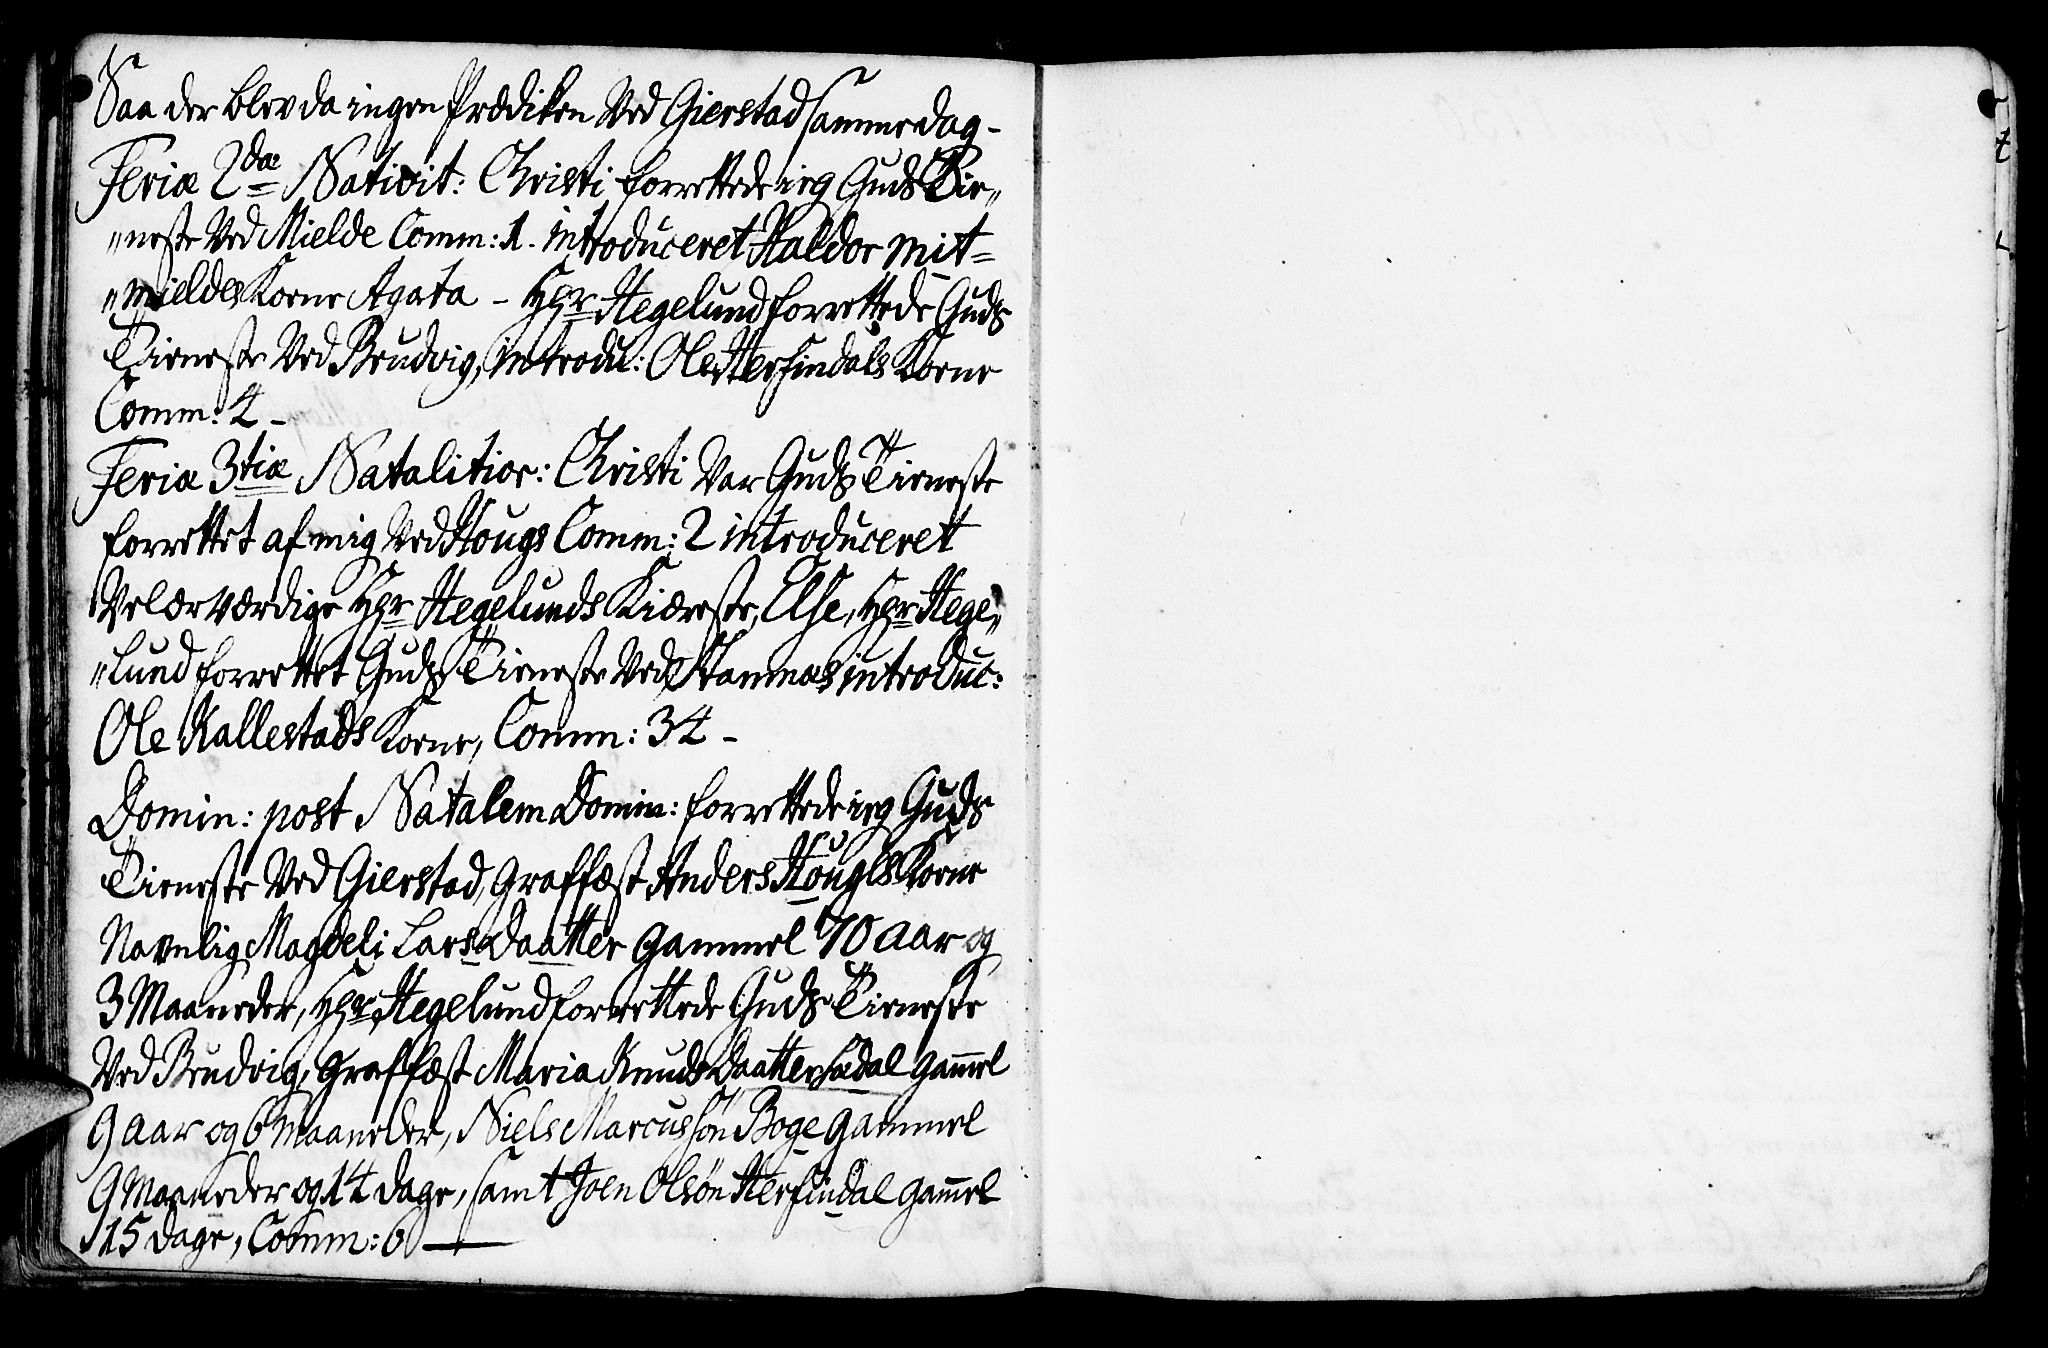 Saa der blev da ingen Prædiken Ved Gierstad samme dag -
Feriæ 2dæ Nativit: Christi forrettede ieg Guds Tie„
„neste Ved Mielde Comm: 1. introduceret Haldor mit=
„mieldes Kone Agata - Hr Hegelund forrettede Guds
Tieneste Ved Brudvig, introdu: Ole Herfindals Kone
Comm: 4 -
Feriæ 3tiæ Natalitior: Christi Var Guds Tieneste
forrettet af mig Ved Hougs Comm: 2 introduceret
Velærværdige Hr Hegelunds Kiæreste, Else, Hr Hege„
„lund forrettet Guds Tieneste Ved Hammer introduc:
Ole Kallestads Kone, Comm: 34 -
Domin: post Natalem Domin: forrettede ieg Guds
Tieneste Ved Gierstad, Graffæst Anders Hougs Kone
Navnlig Magdeli Lars Daatter gammel 70 aar og
3 Maaneder, Hr Hegelund forrettede Guds Tieneste
Ved Brudvig, graffæst Maria Knuds Daatter gammel
9 aar og 6 maaneder, Niels Marcussøn Boge gammel
9 Maaneder og 14 dage, samt Joen Olsøn Herfindal gammel
15 dage, Comm: 6